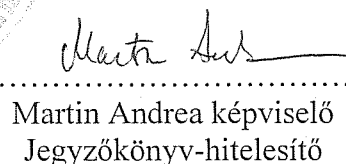 Martin Andrea képviselő
Jegyzőkönyv-hitelesítő